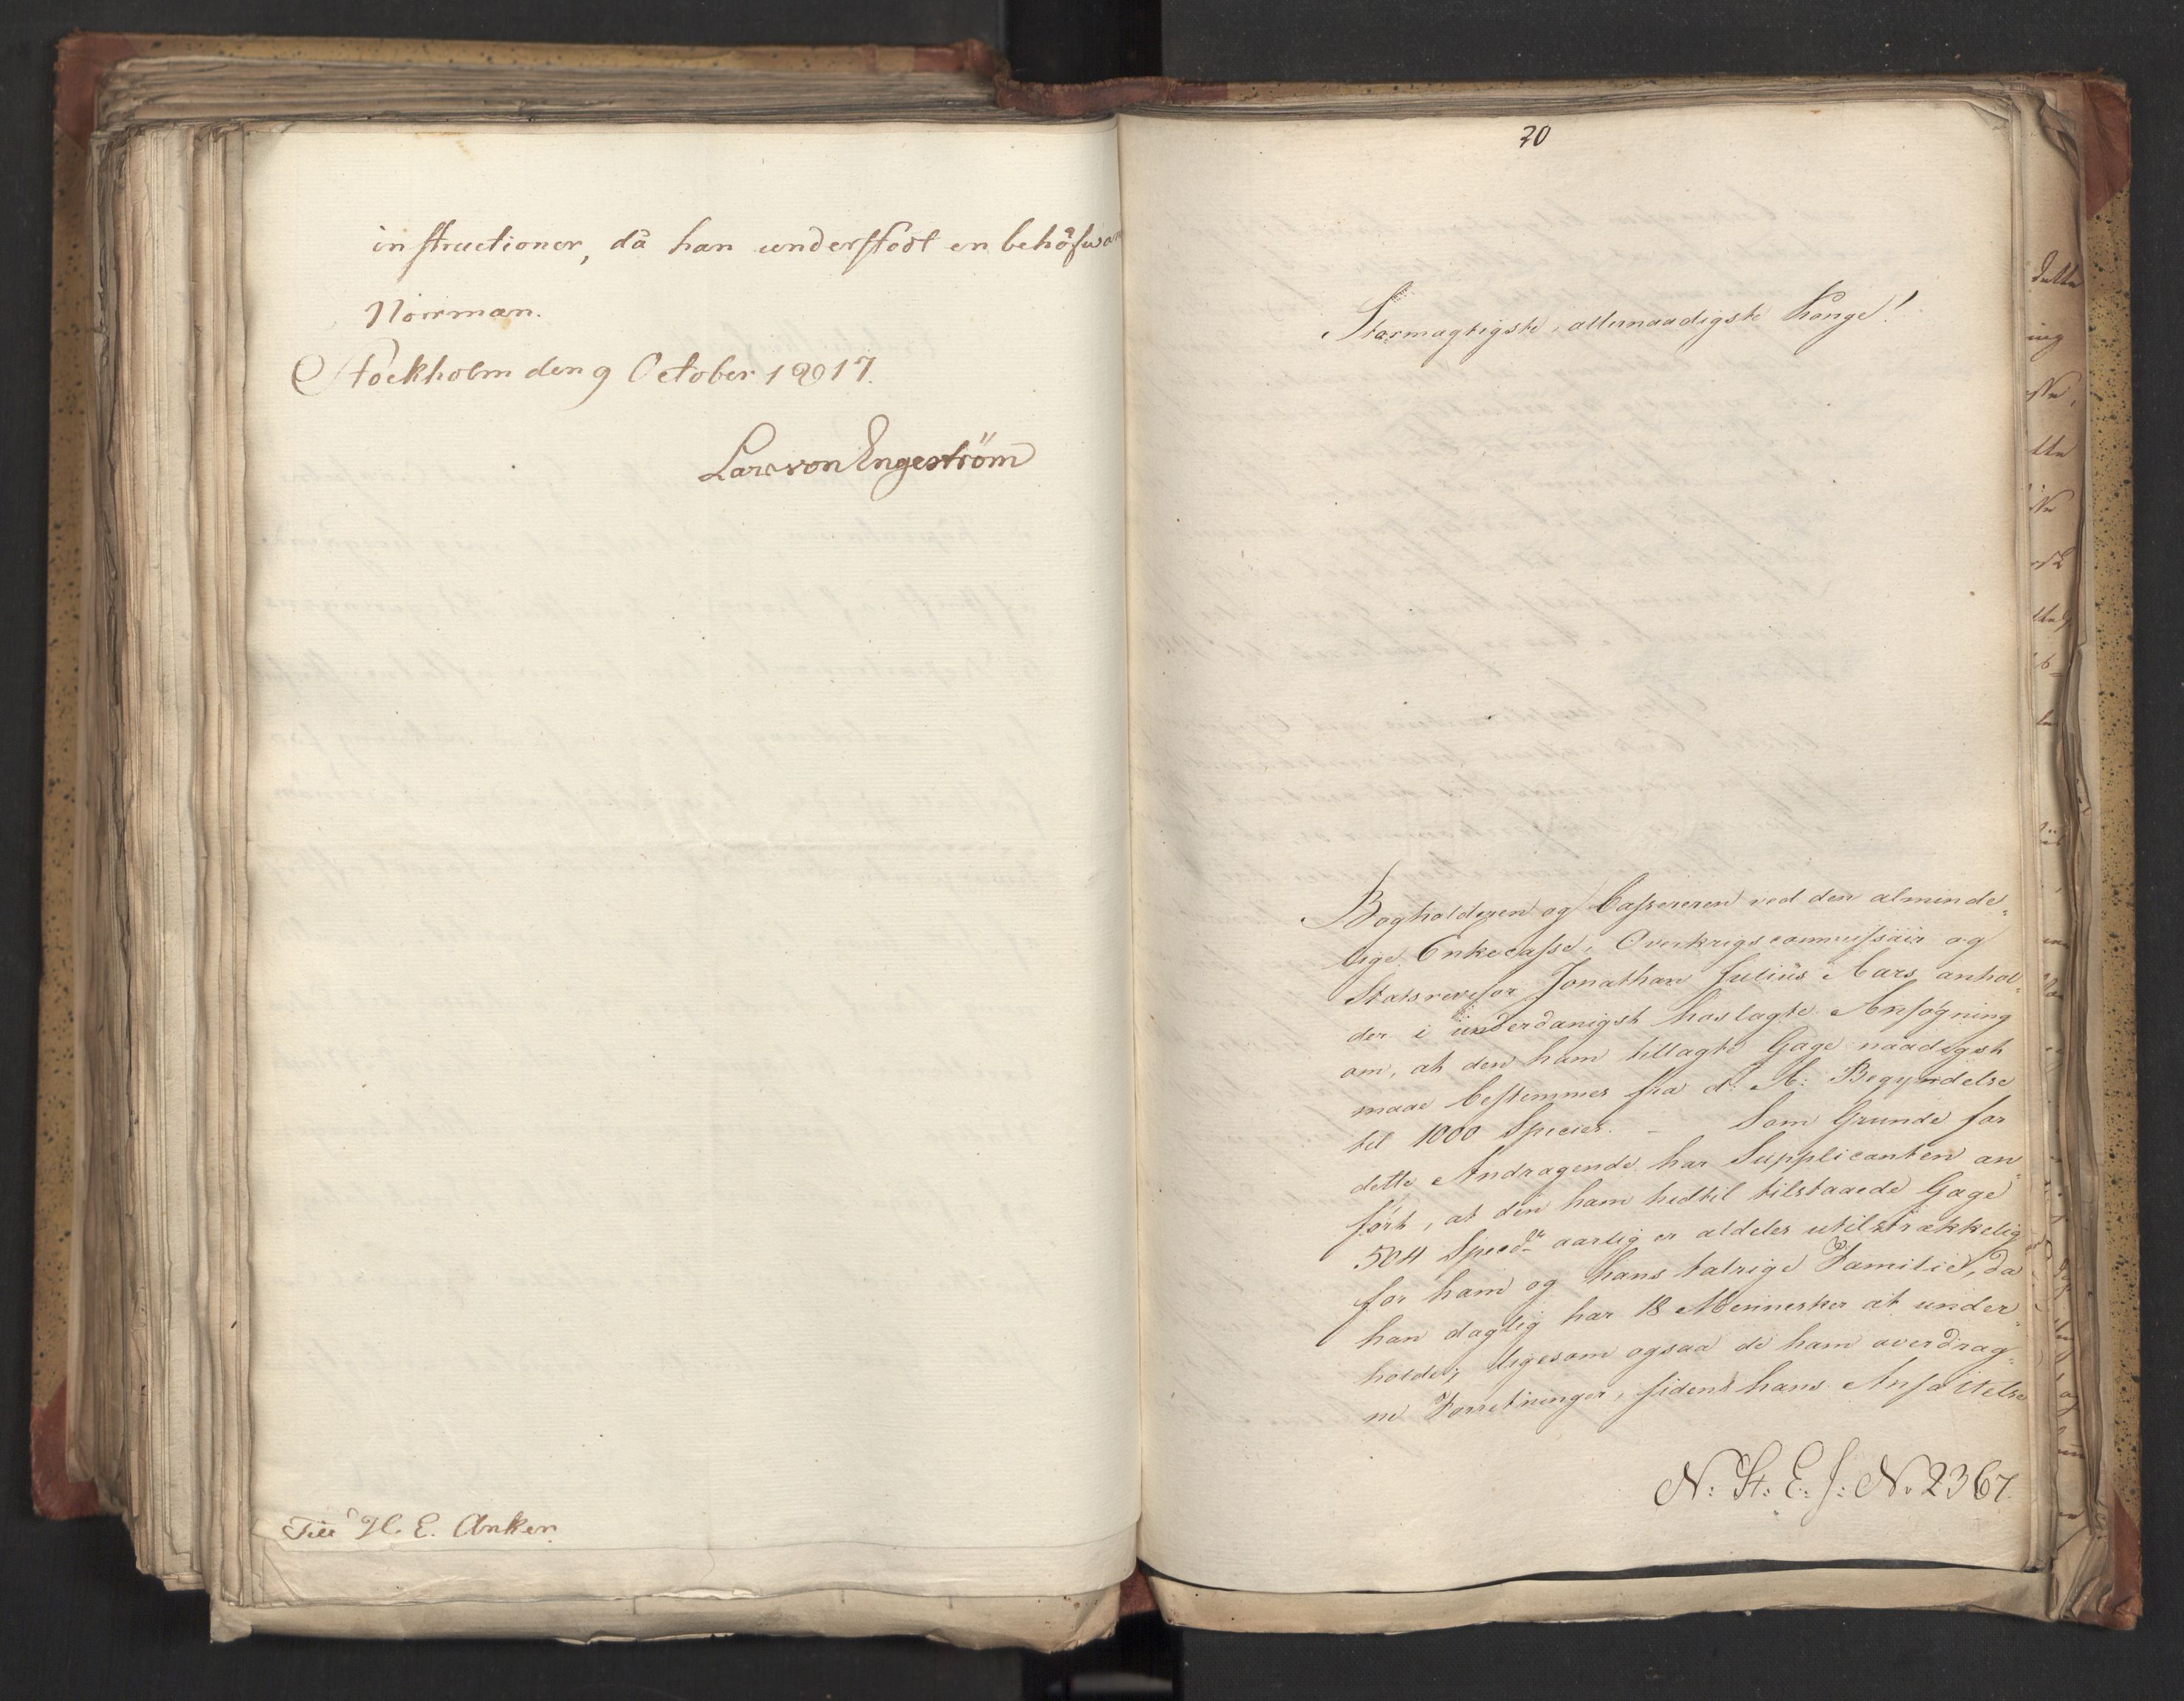 instructioner, då han understödt en behöfwan
Norrman.
Stockholm den 9 October 1817.
Lars von Engeström
Till H. E. Anker
70
Stormægtigste, allernaadigste Konge!
Bogholderen og Cassereren ved den alminde„
lige Enkecasse, Overkrigscommissair og
Statsrevisor Jonathan Julius Aars anhol„
der i underdanigst hoslagte Ansøgning
om, at den ham tillagte Gage naadigst
maae bestemmes fra d: A: Begyndelse
til 1000 Species. – Som Grunde for
dette Andragende har Supplicanten an„
ført, at den ham hidtil tilstaaede Gage
504 Specd. aarlig er aldeles utilstrækkelig
for ham og hans talrige Familie, da
han daglig har 18 Mennesker at under„
holde, ligesom ogsaa de ham overdrag„
ne Forretninger, siden hans Ansættelse
N: St: E. J: No 2367.